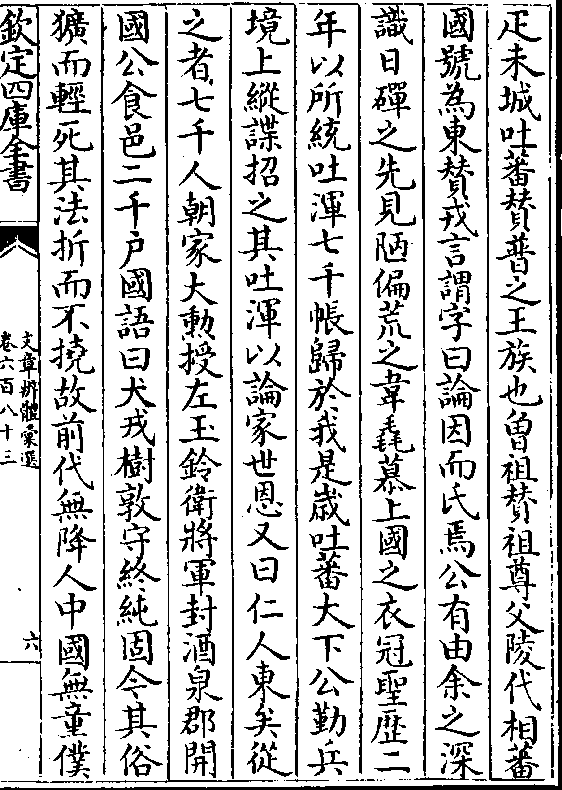 疋末城吐蕃賛普之王族也曾祖賛祖尊父陵代相蕃
國號為東賛戎言謂字曰論因而氏焉公有由余之深
識日磾之先見陋偏荒之韋毳慕上國之衣冠聖歴二
年以所統吐渾七千帳歸於我是歳吐蕃大下公勤兵
境上縱諜招之其吐渾以論家世恩又曰仁人東矣從
之者七千人朝家大勲授左玉鈐衛將軍封酒泉郡開
國公食邑二千户國語曰犬戎樹敦守終純固今其俗
獷而輕死其法折而不撓故前代無降人中國無童僕
欽定四庫全書
文章辨體彚選
卷六百八十三
六